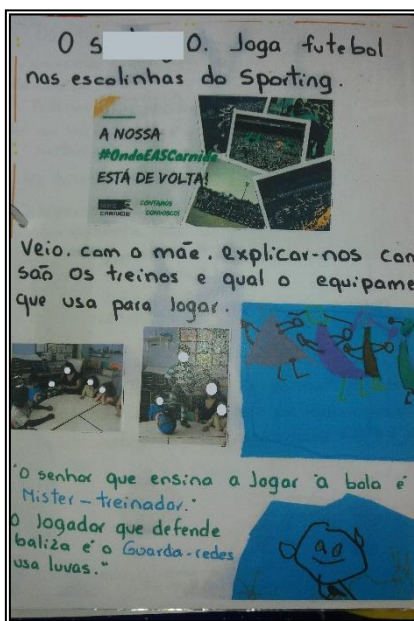 O S O. Joga futebol
nas escolinhas do Sporting.
A NOSSA
#OndaEASCarnide
ESTÁ DE VOLTA!
CARNIDE
CONTAMOS
CONVOSCO!
Veio. com a mãe. explicar-nos com
são os treinos e qual o equipame
que usa para Jogar.
"O senhor que ensina a Jogar à bola é
Mister-treinador."
O Jogador que defende
baliza é o Guarda-redes
usa luvas."